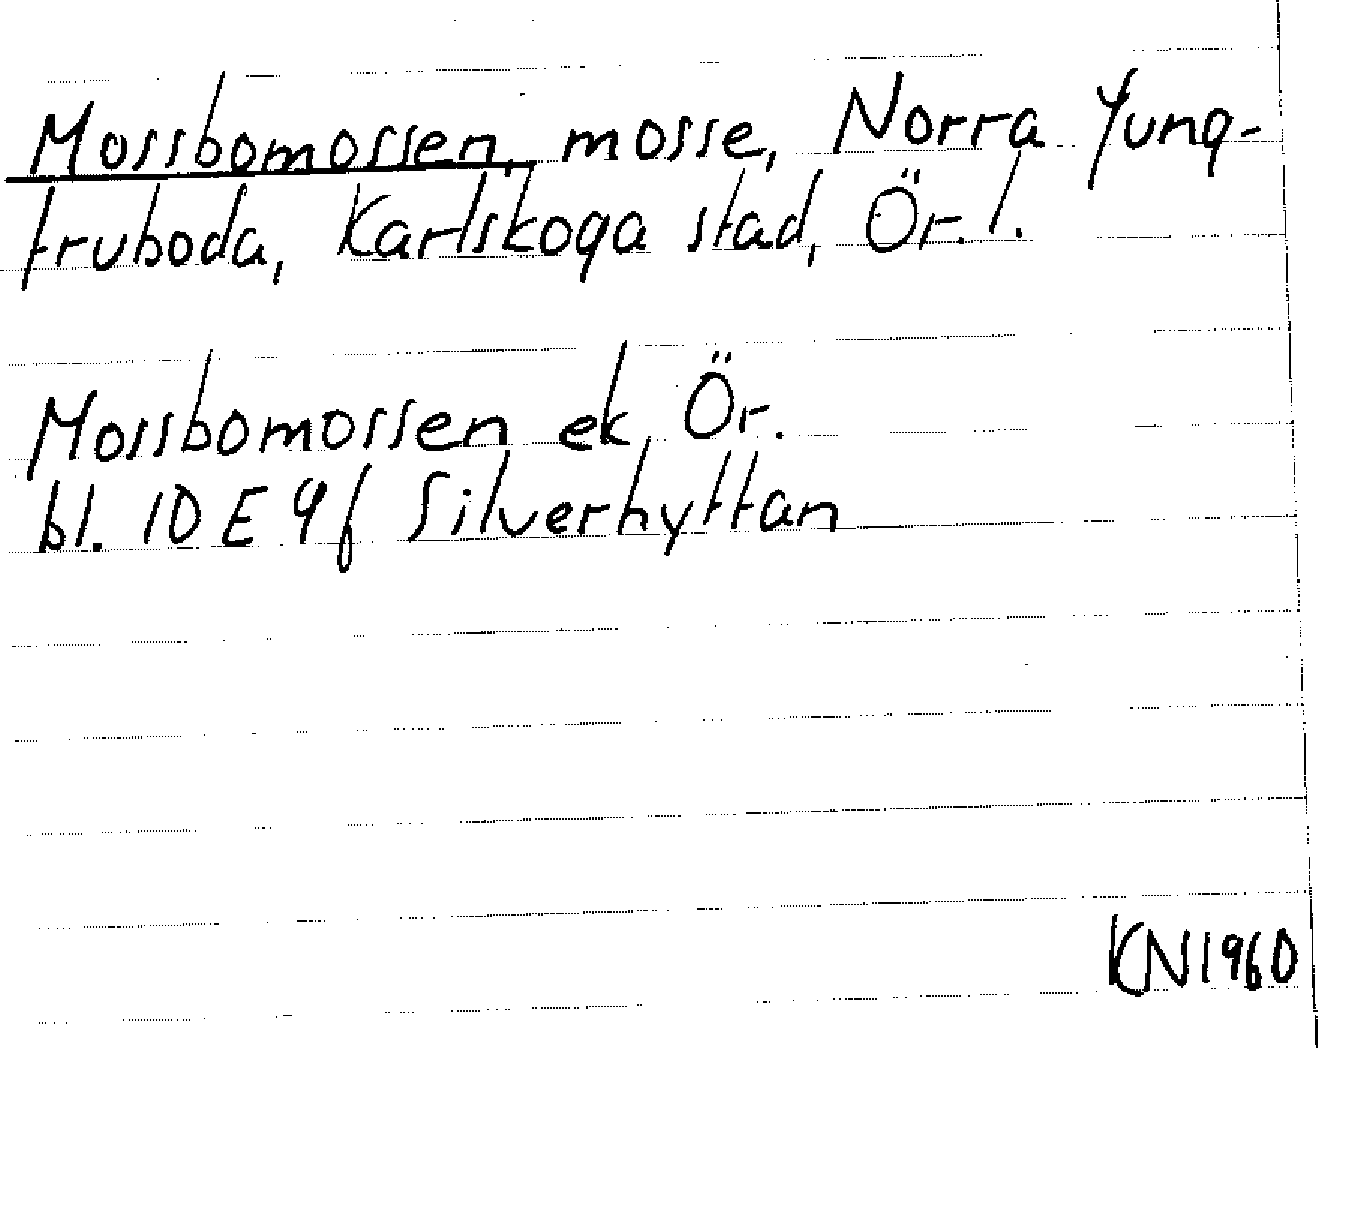 Mossbomossen, mosse, Norra Jung-
fruboda, Karlskoga stad, Ör. l.
Mossbomossen ek Ör.
bl. 10 E 9 f Silverhyttan
KN 1960